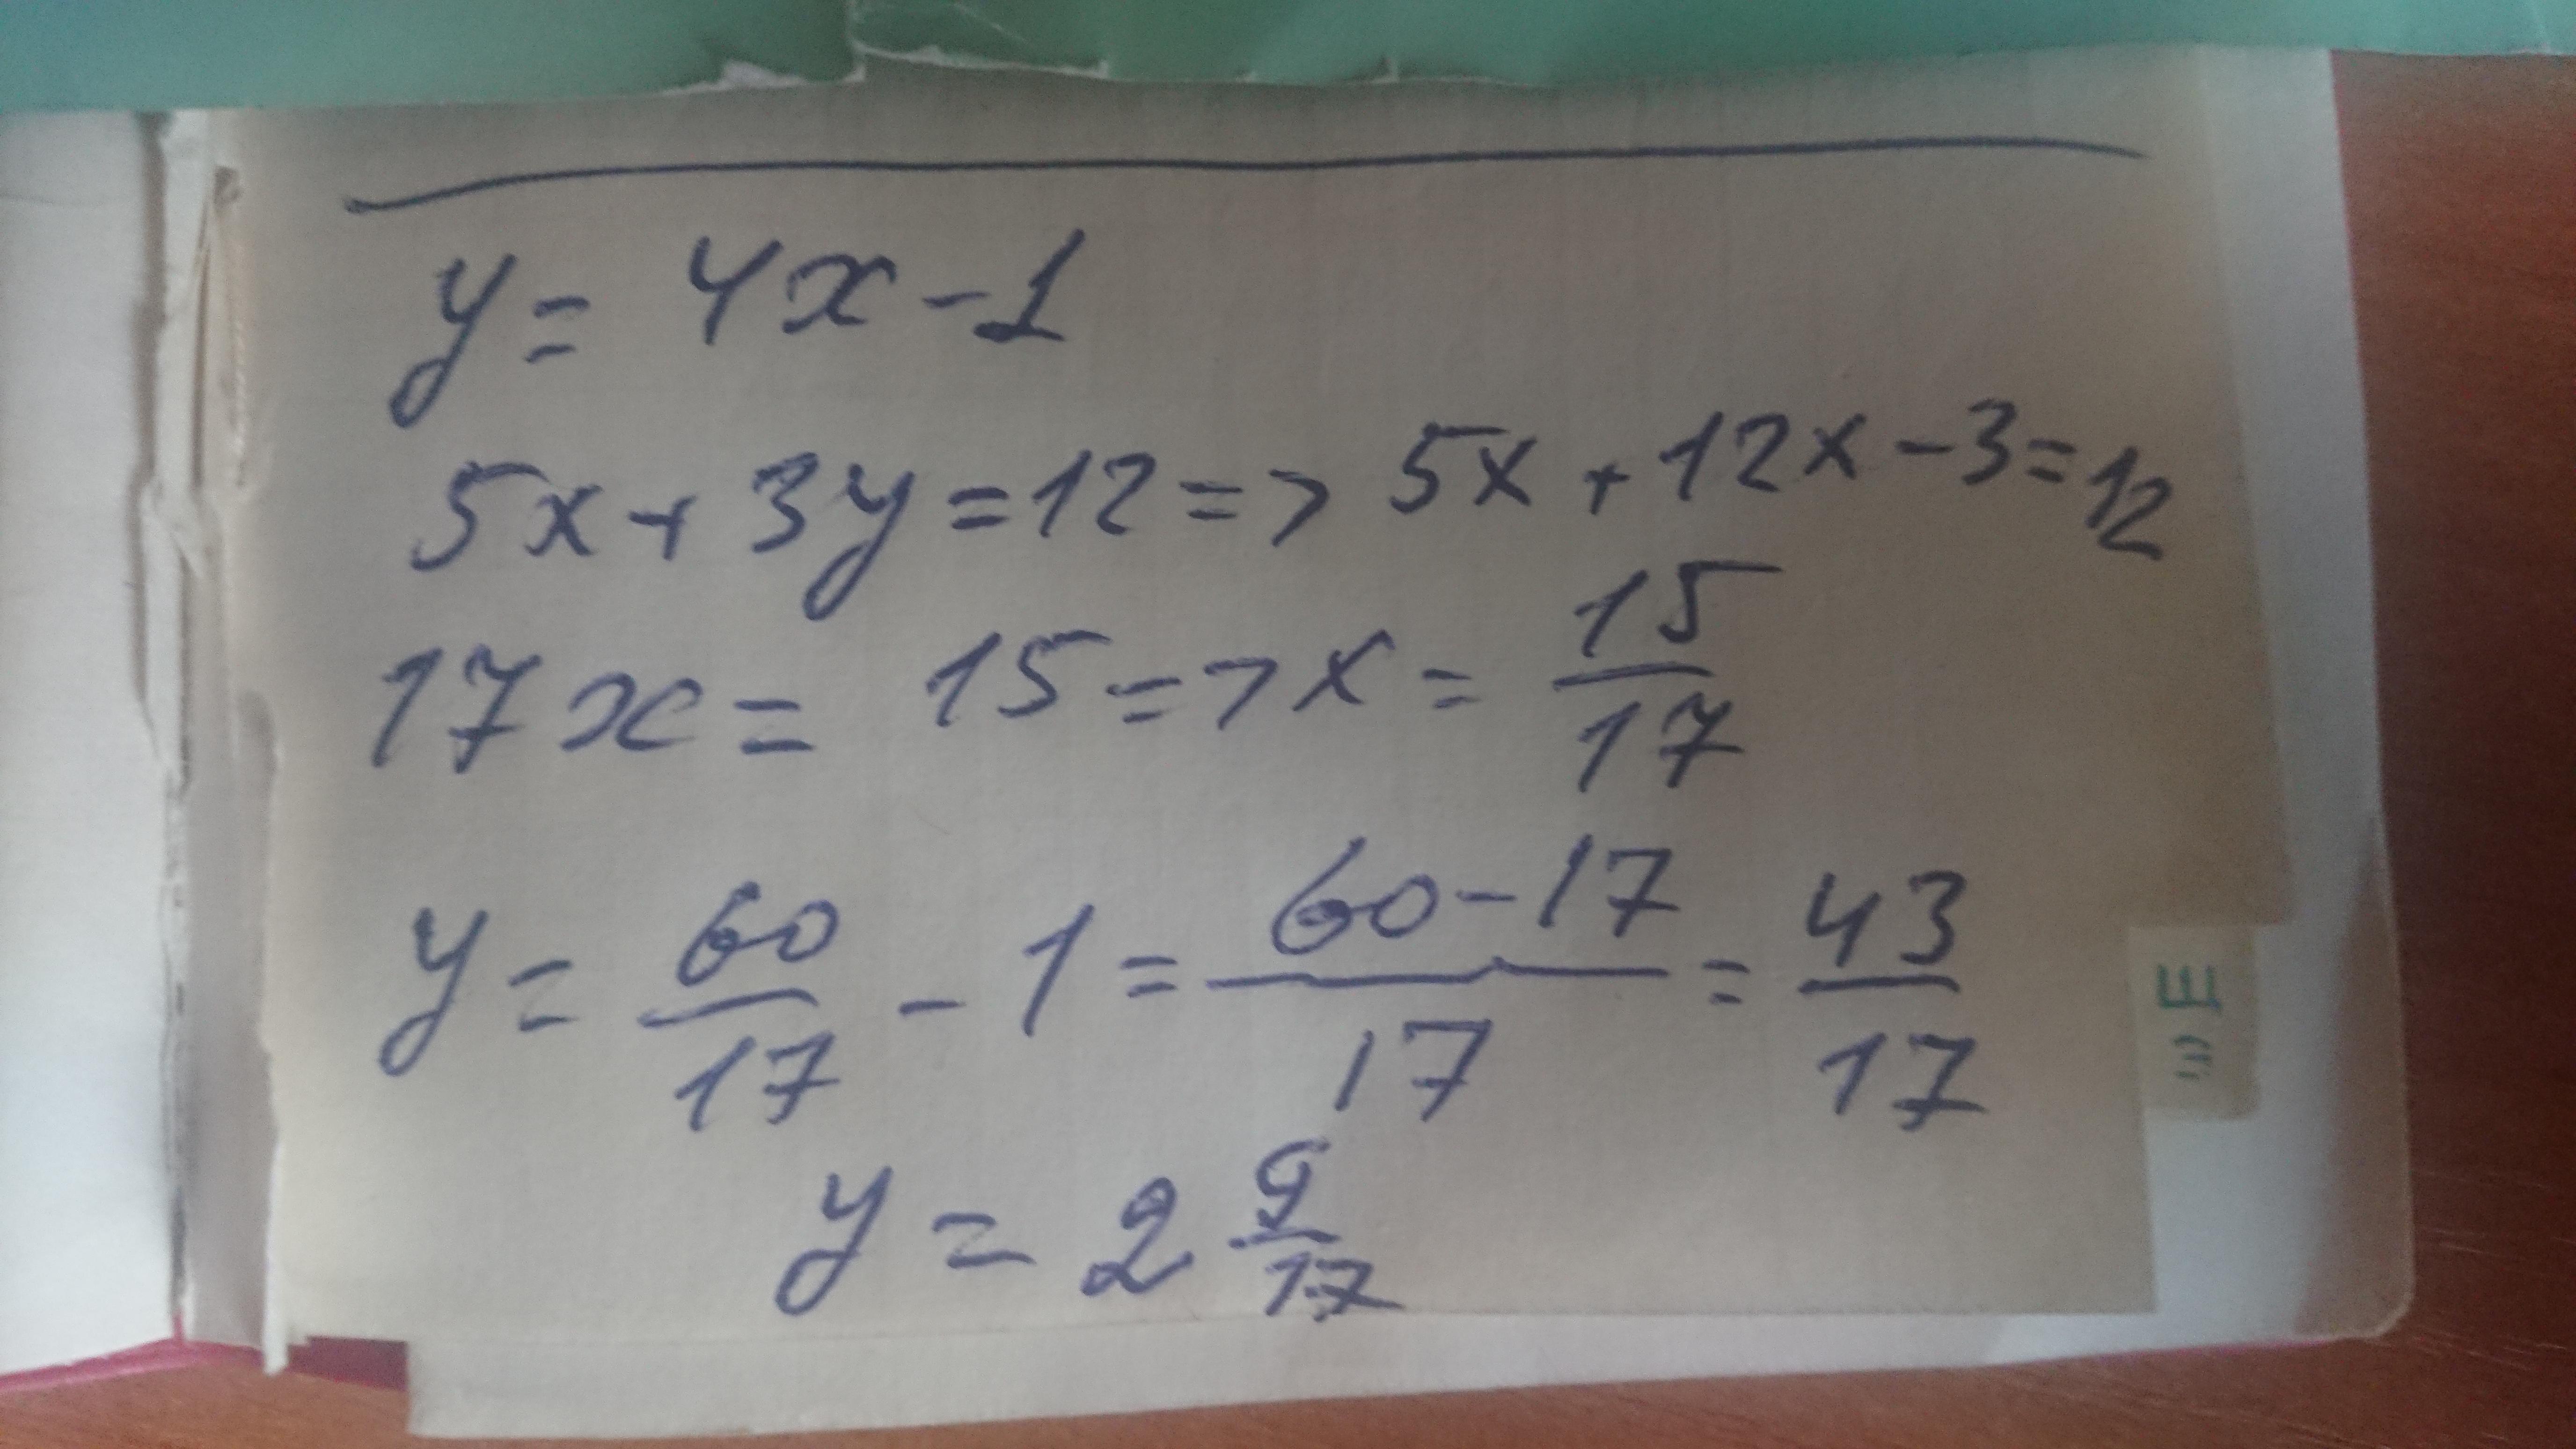 y = 4x - 1
5x + 3y = 12 => 5x + 12x - 3 = 12
17x = 15 => x = 15/17
y = 60/17 - 1 = (60-17)/17 = 43/17
y = 2 9/17